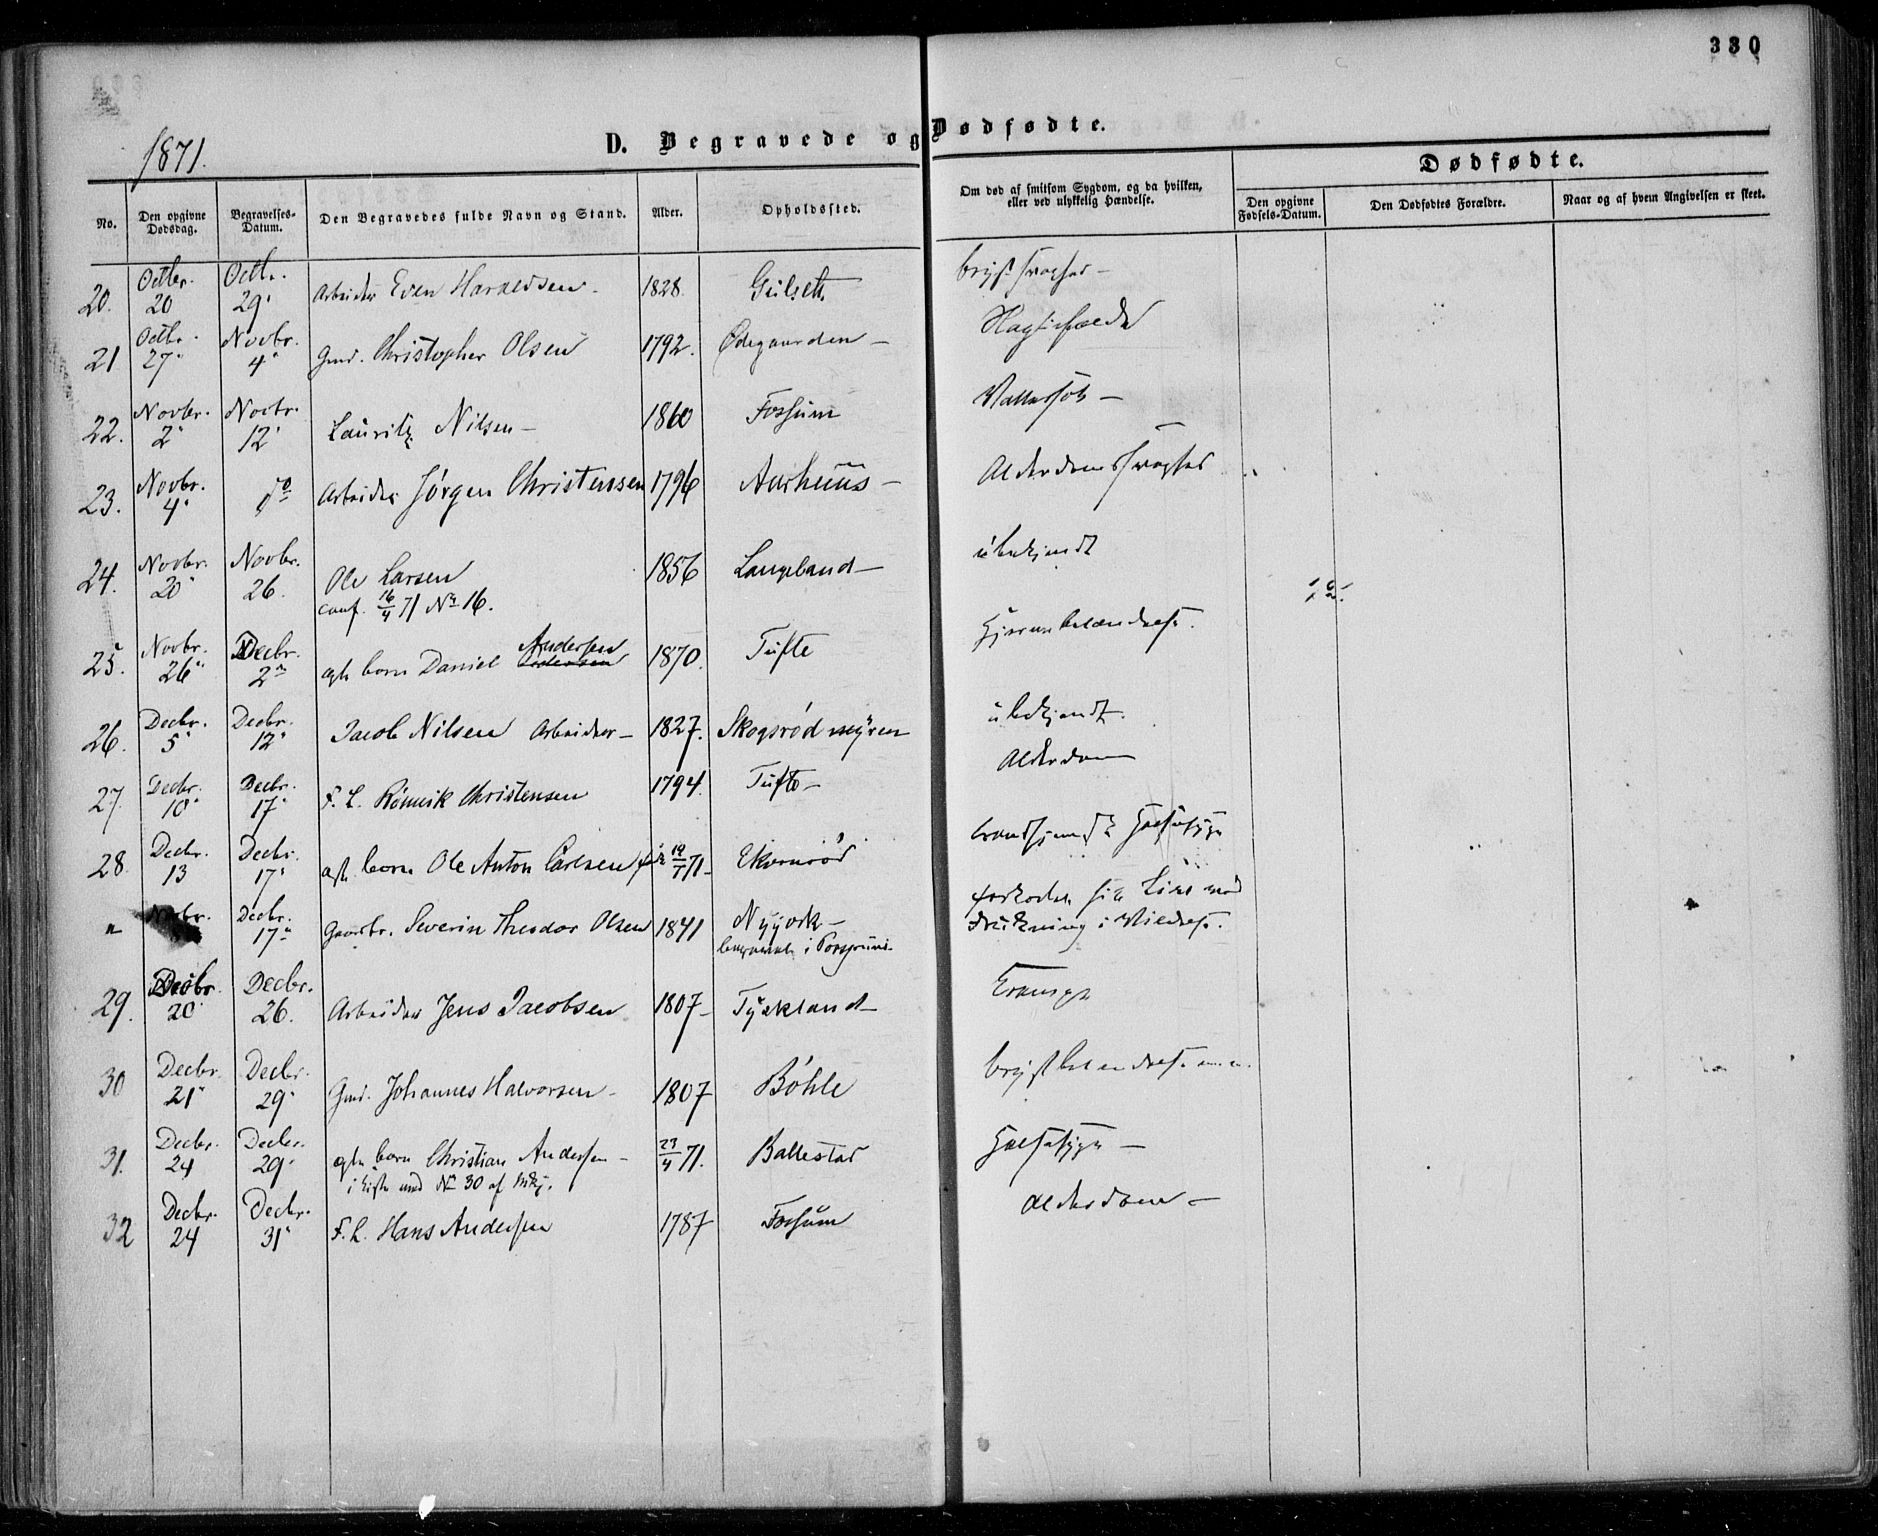 330
1871.
D. Begravede og Dødfødte.
No. Den opgivne Dødsdag. Begravelses-Datum. Den Begravedes fulde Navn og Stand. Alder. Opholdssted. Om død af smitsom Sygdom, og da hvilken, eller ved ulykkelig Hændelse. Dødfødte.
Den opgivne Fødsels-Datum. Den Dødfødtes Forældre. Naar og af hvem Angivelsen er skeet.
20. Octbr. 20 Octbr. 29 Arbeider Even Haraldsen 1828. Gulseth brystsvaghed
21 Octbr. 27 Novbr. 4 Gmd. Christopher Olsen 1792. Ødegaarden Slagtilfælde
22. Novbr. 2 Novbr. 12 Lauritz Nilsen 1860 Fossum Vattersot
23. Novbr. 4 do Arbeider Jørgen Christensen 1796 Aarhuus Alderdomssvaghed
24. Novbr. 20 Novbr. 26. Ole Larsen 1856 Langeland ubekjendt
conf. 16/4 71 No 16.
25. Novbr. 26 Decbr. 2 Andersen
ægte barn Daniel 1870. Tufte Hjernebetændelse.
26. Decbr. 5 Decbr. 12 Jacob Nilsen Arbeider 1827. Skogsrødmyren ubekjendt.
27. Decbr. 10 Decbr. 17 F. L. Christensen 1794. Tufte Alderdom
28. Decbr. 13 Decbr. 17 ægte barn Ole Anton Carlsen 19/7 71 Ekornrød Halssyge
" Decbr. 17 Gaardbr. Severin Theodor Olsen 1841 Nyjordet forkortede sit Liv ved
begravet i Porsgrund. Drukning i Vildelse.
29. Decbr. 20 Decbr. 26. Arbeider Jens Jacobsen 1807 Tyskland
30 Decbr. 21 Decbr. 29 Gmd. Johannes Halvorsen 1807 Bøhle brystbetændelse
31. Decbr. 24 Decbr. 29 ægte barn Christian Andersen 23/4 71. Ballestad Halssyge
i Kiste med No 30 af
32 Decbr. 24 Decbr. 31 F. L. Hans Andersen 1787 Fossum Alderdom